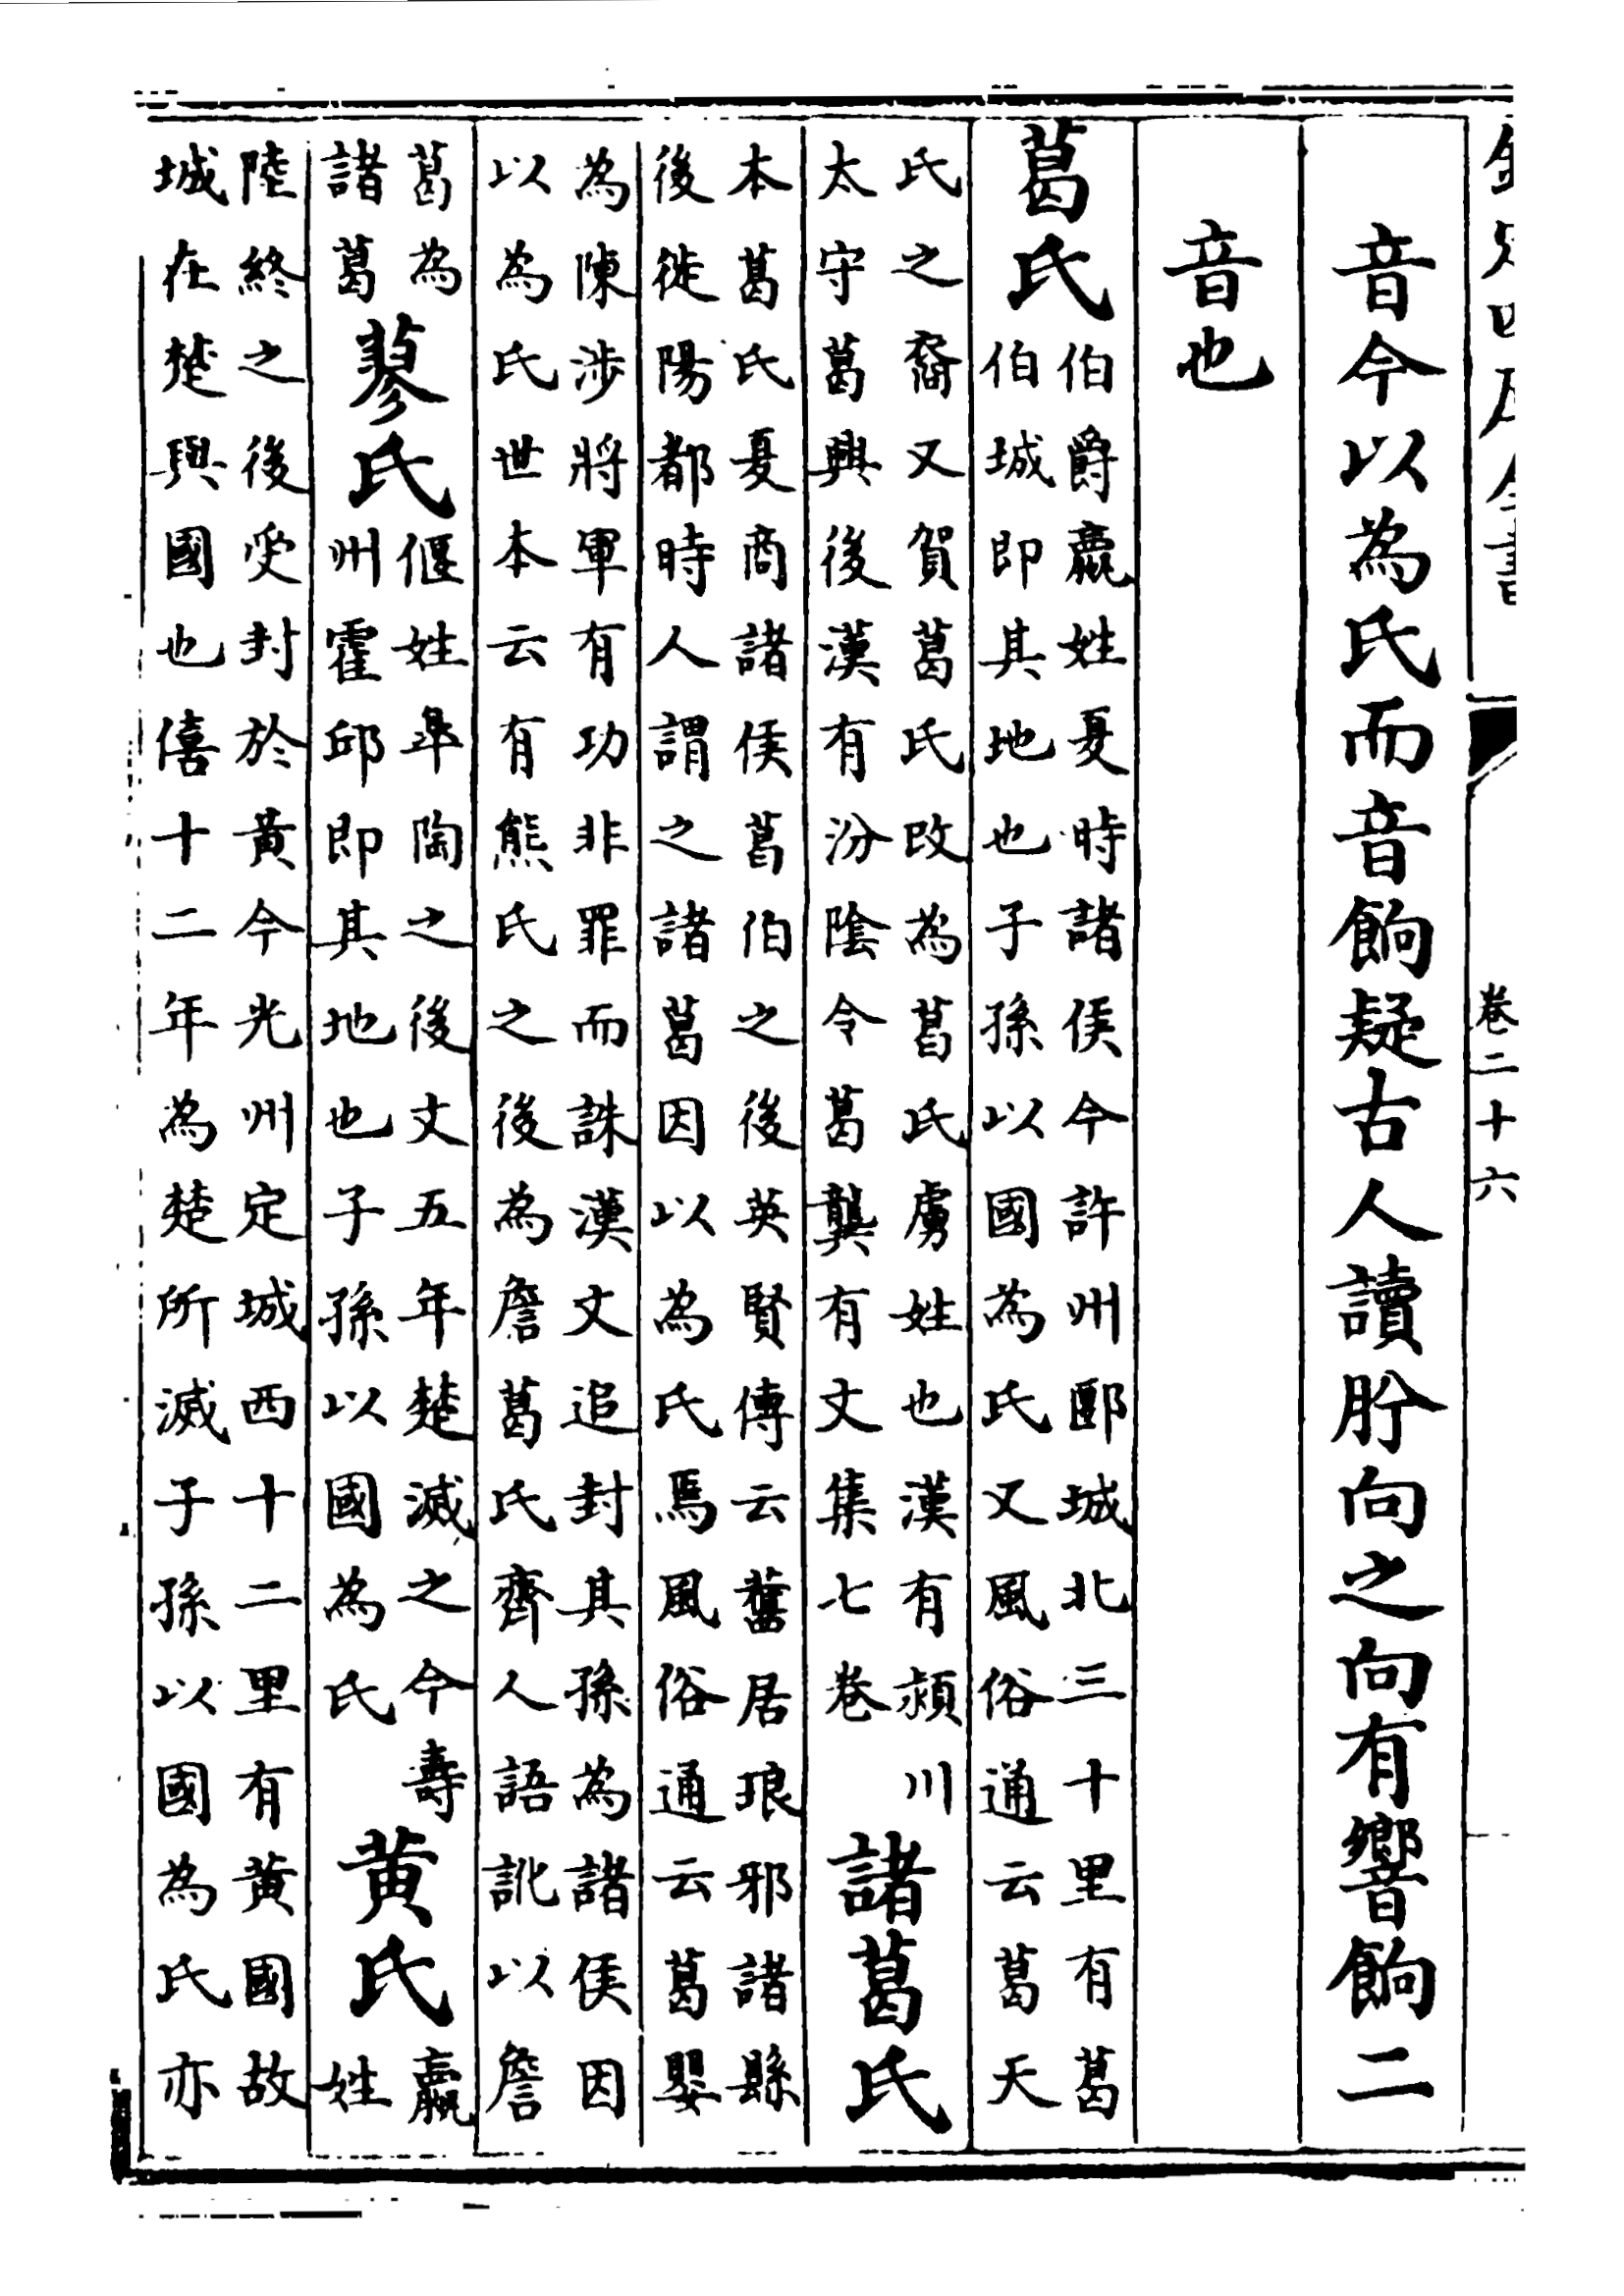 欽定四庫全書
卷二十六
音今以為氏而音餉疑古人讀肹向之向有響餉二
音也
葛氏
伯爵嬴姓夏時諸侯今許州郾城北三十里有葛
伯城即其地也子孫以國為氏又風俗通云葛天
氏之裔又賀葛氏改為葛氏虜姓也漢有潁川
太守葛興後漢有汾陰令葛龔有文集七卷
諸葛氏
本葛氏夏商諸侯葛伯之後英賢傳云舊居琅邪諸縣
後徙陽都時人謂之諸葛因以為氏焉風俗通云葛嬰
為陳涉將軍有功非罪而誅漢文追封其孫為諸侯因
以為氏世本云有熊氏之後為詹葛氏齊人語訛以詹
葛為
諸葛
蓼氏
偃姓臯陶之後文五年楚滅之今壽
州霍邱即其地也子孫以國為氏
黃氏
嬴
姓
陸終之後受封於黃今光州定城西十二里有黃國故
城在楚與國也僖十二年為楚所滅子孫以國為氏亦